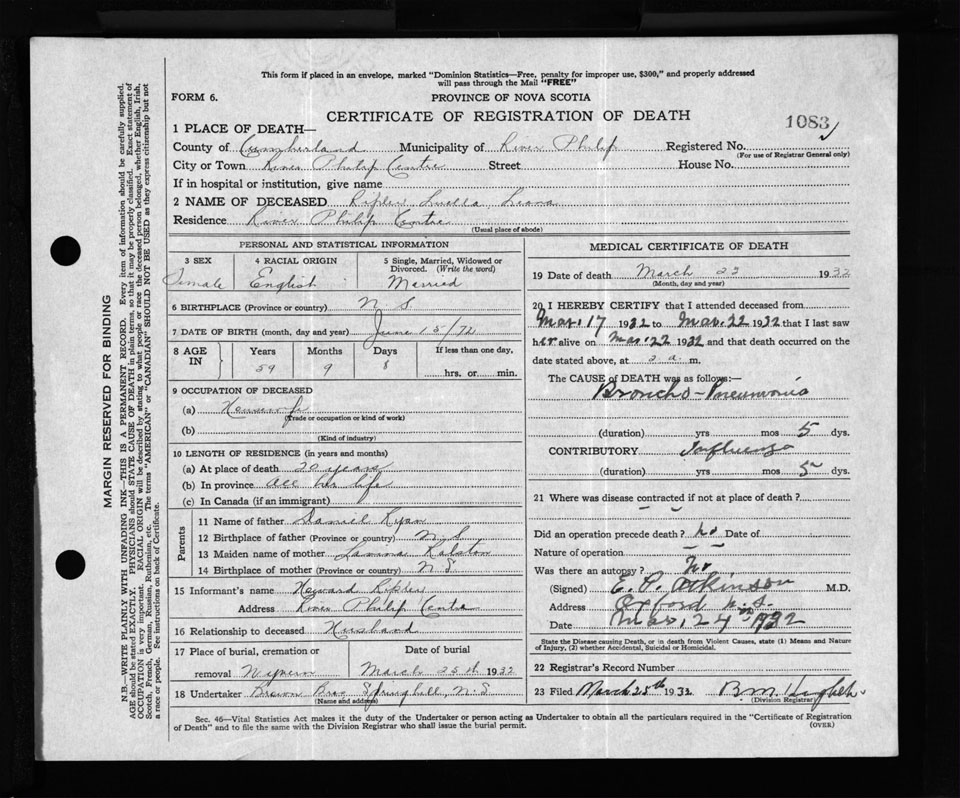 This form if placed in an envelope, marked "Dominion Statistics—Free, penalty for improper use, $300," and properly addressed
will pass through the Mail "FREE"
FORM 6.
PROVINCE OF NOVA SCOTIA
CERTIFICATE OF REGISTRATION OF DEATH
1083
1 PLACE OF DEATH—
County of Cumberland Municipality of River Philip Registered No.
(For use of Registrar General only)
City or Town River Philip Centre Street House No.
If in hospital or institution, give name
2 NAME OF DECEASED Ripley Luella
Residence River Philip Centre
(Usual place of abode)
PERSONAL AND STATISTICAL INFORMATION
3 SEX 4 RACIAL ORIGIN 5 Single, Married, Widowed or Divorced. (Write the word)
Female English Married
6 BIRTHPLACE (Province or country) N S
7 DATE OF BIRTH (month, day and year) June 15/72
8 AGE IN Years Months Days If less than one day,
59 9 8 hrs. or min.
9 OCCUPATION OF DECEASED
(a) Housewife
(Trade or occupation or kind of work)
(b)
(Kind of industry)
10 LENGTH OF RESIDENCE (in years and months)
(a) At place of death 20 years
(b) In province all her life
(c) In Canada (if an immigrant)
Parents
11 Name of father Daniel Ryan
12 Birthplace of father (Province or country) N. S
13 Maiden name of mother Ralston
14 Birthplace of mother (Province or country) N S
15 Informant's name Howard Ripley
Address River Philip Centre
16 Relationship to deceased Husband
17 Place of burial, cremation or removal Date of burial
March 25th 1932
18 Undertaker Brown Bros Springhill, N. S
(Name and address)
MEDICAL CERTIFICATE OF DEATH
19 Date of death March 23 1932
(Month, day and year)
20 I HEREBY CERTIFY that I attended deceased from
Mar. 17 1932 to Mar. 22 1932 that I last saw
her alive on Mar. 22 1932 and that death occurred on the
date stated above, at 2 a. m.
The CAUSE OF DEATH was as follows:—
Broncho-Pneumonia
(duration) yrs mos 5 dys.
CONTRIBUTORY Influenza
(duration) yrs mos 5 dys.
21 Where was disease contracted if not at place of death?
Did an operation precede death? No Date of
Nature of operation
Was there an autopsy? No
(Signed) E. P. Atkinson M.D.
Address Oxford N.S.
Date Mar. 24th 1932
State the Disease causing Death, or in death from Violent Causes, state (1) Means and Nature
of Injury, (2) whether Accidental, Suicidal or Homicidal.
22 Registrar's Record Number
23 Filed March 25th 1932 B M
(Division Registrar)
Sec. 46—Vital Statistics Act makes it the duty of the Undertaker or person acting as Undertaker to obtain all the particulars required in the "Certificate of Registration
of Death" and to file the same with the Division Registrar who shall issue the burial permit.
(OVER)
MARGIN RESERVED FOR BINDING
N.B.—WRITE PLAINLY WITH UNFADING INK—THIS IS A PERMANENT RECORD. Every item of information should be carefully supplied.
AGE should be stated EXACTLY. PHYSICIANS should STATE CAUSE OF DEATH in plain terms, so that it may be properly classified. Exact statement of
OCCUPATION is very important. RACIAL ORIGIN will be described by stating to what people or race the deceased person belonged, whether English, Irish,
Scotch, French, German, Russian, Ruthenian, etc. The terms "AMERICAN" or "CANADIAN" SHOULD NOT BE USED as they express citizenship but not
a race or people. See instructions on back of Certificate.